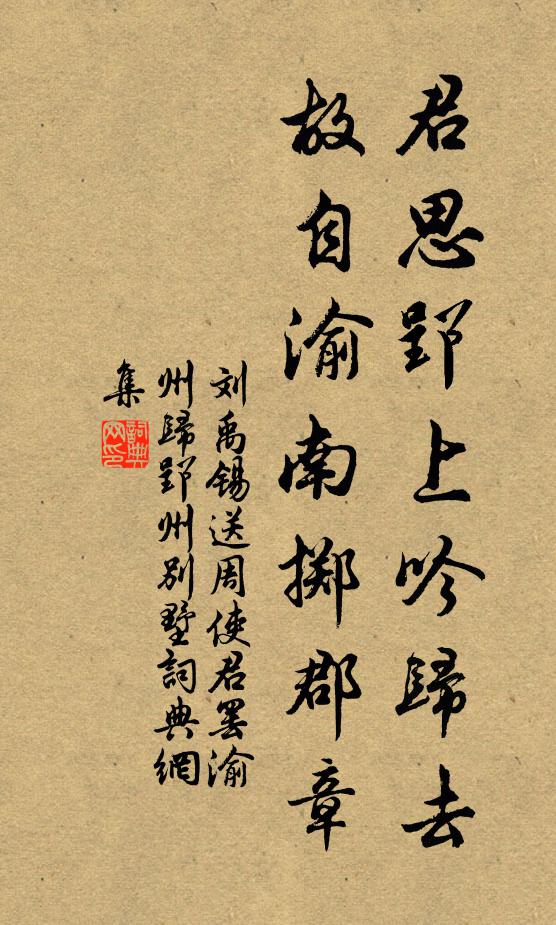 君思郢上吟歸去
故自渝南擲郡章
刘禹锡送周使君罢渝
州歸郢州别墅詞典網
集
詞典
网印